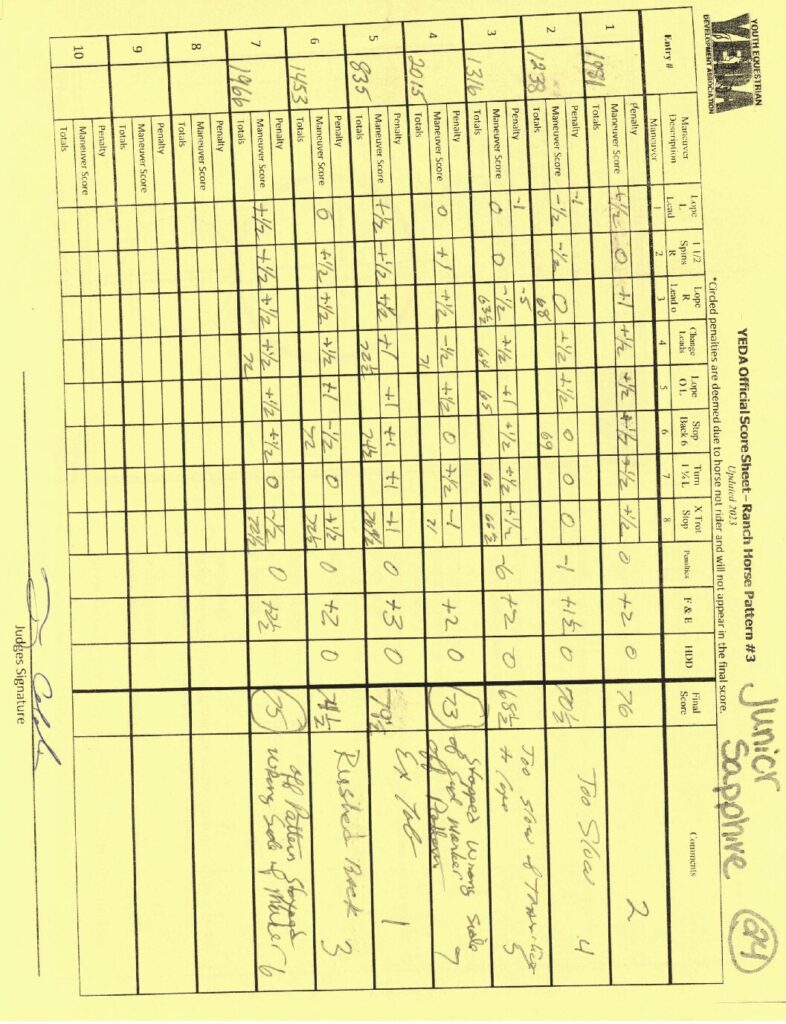 YOUTH EQUESTRIAN
YEDA
DEVELOPMENT ASSOCIATION
YEDA Official Score Sheet – Ranch Horse Pattern #3
Updated 2023
*Circled penalties are deemed due to horse not rider and will not appear in the final score.
Junior Sapphire
24
Entry # Maneuver Description Lope L Lead 1 1/2 Spins R Lope R Lead o Change Leads Lope O L Stop Back 6 Turn 1 ¼ L X Trot Stop Penalties F & E HDD Final Score Comments
Maneuver 1 2 3 4 5 6 7 8
1 Penalty
1981 Maneuver Score 0 +1 +1/2 +1/2 +1/2 +1/2 +1/2 0 +2 0 76 2
Totals
2 Penalty -1
1238 Maneuver Score -1/2 -1/2 0 +1/2 +1/2 0 0 0 -1 +1½ 0 70½ Too Slow 4
Totals 68 69
3 Penalty -1 -5
1316 Maneuver Score 0 0 -1/2 +1/2 +1 +1/2 +1/2 +1/2 -6 +2 0 68½ Too slow 5
Totals 63½ 64 65 66 66½ to lope
4 Penalty
2015 Maneuver Score 0 +1 +1/2 -1/2 +1/2 0 +1/2 -1 +2 0 73 Stopped wrong side
Totals 71 71 of end marker
off Pattern 7
5 Penalty
835 Maneuver Score +1/2 +1/2 +1/2 +1 +1 +1 +1 +1 0 +3 0 79½ 1
Totals 72½ 74½ 76½
6 Penalty
1453 Maneuver Score 0 +1/2 +1/2 +1/2 +1 -1/2 0 +1/2 0 +2 0 74½ Rushed Back 3
Totals 72 72½
7 Penalty
1966 Maneuver Score +1/2 +1/2 +1/2 +1/2 +1/2 +1/2 0 -1/2 0 +2½ 75 off Pattern Stopped
Totals 72 72½ wrong side of Marker 6
8 Penalty
Maneuver Score
Totals
9 Penalty
Maneuver Score
Totals
10 Penalty
Maneuver Score
Totals
Judges Signature